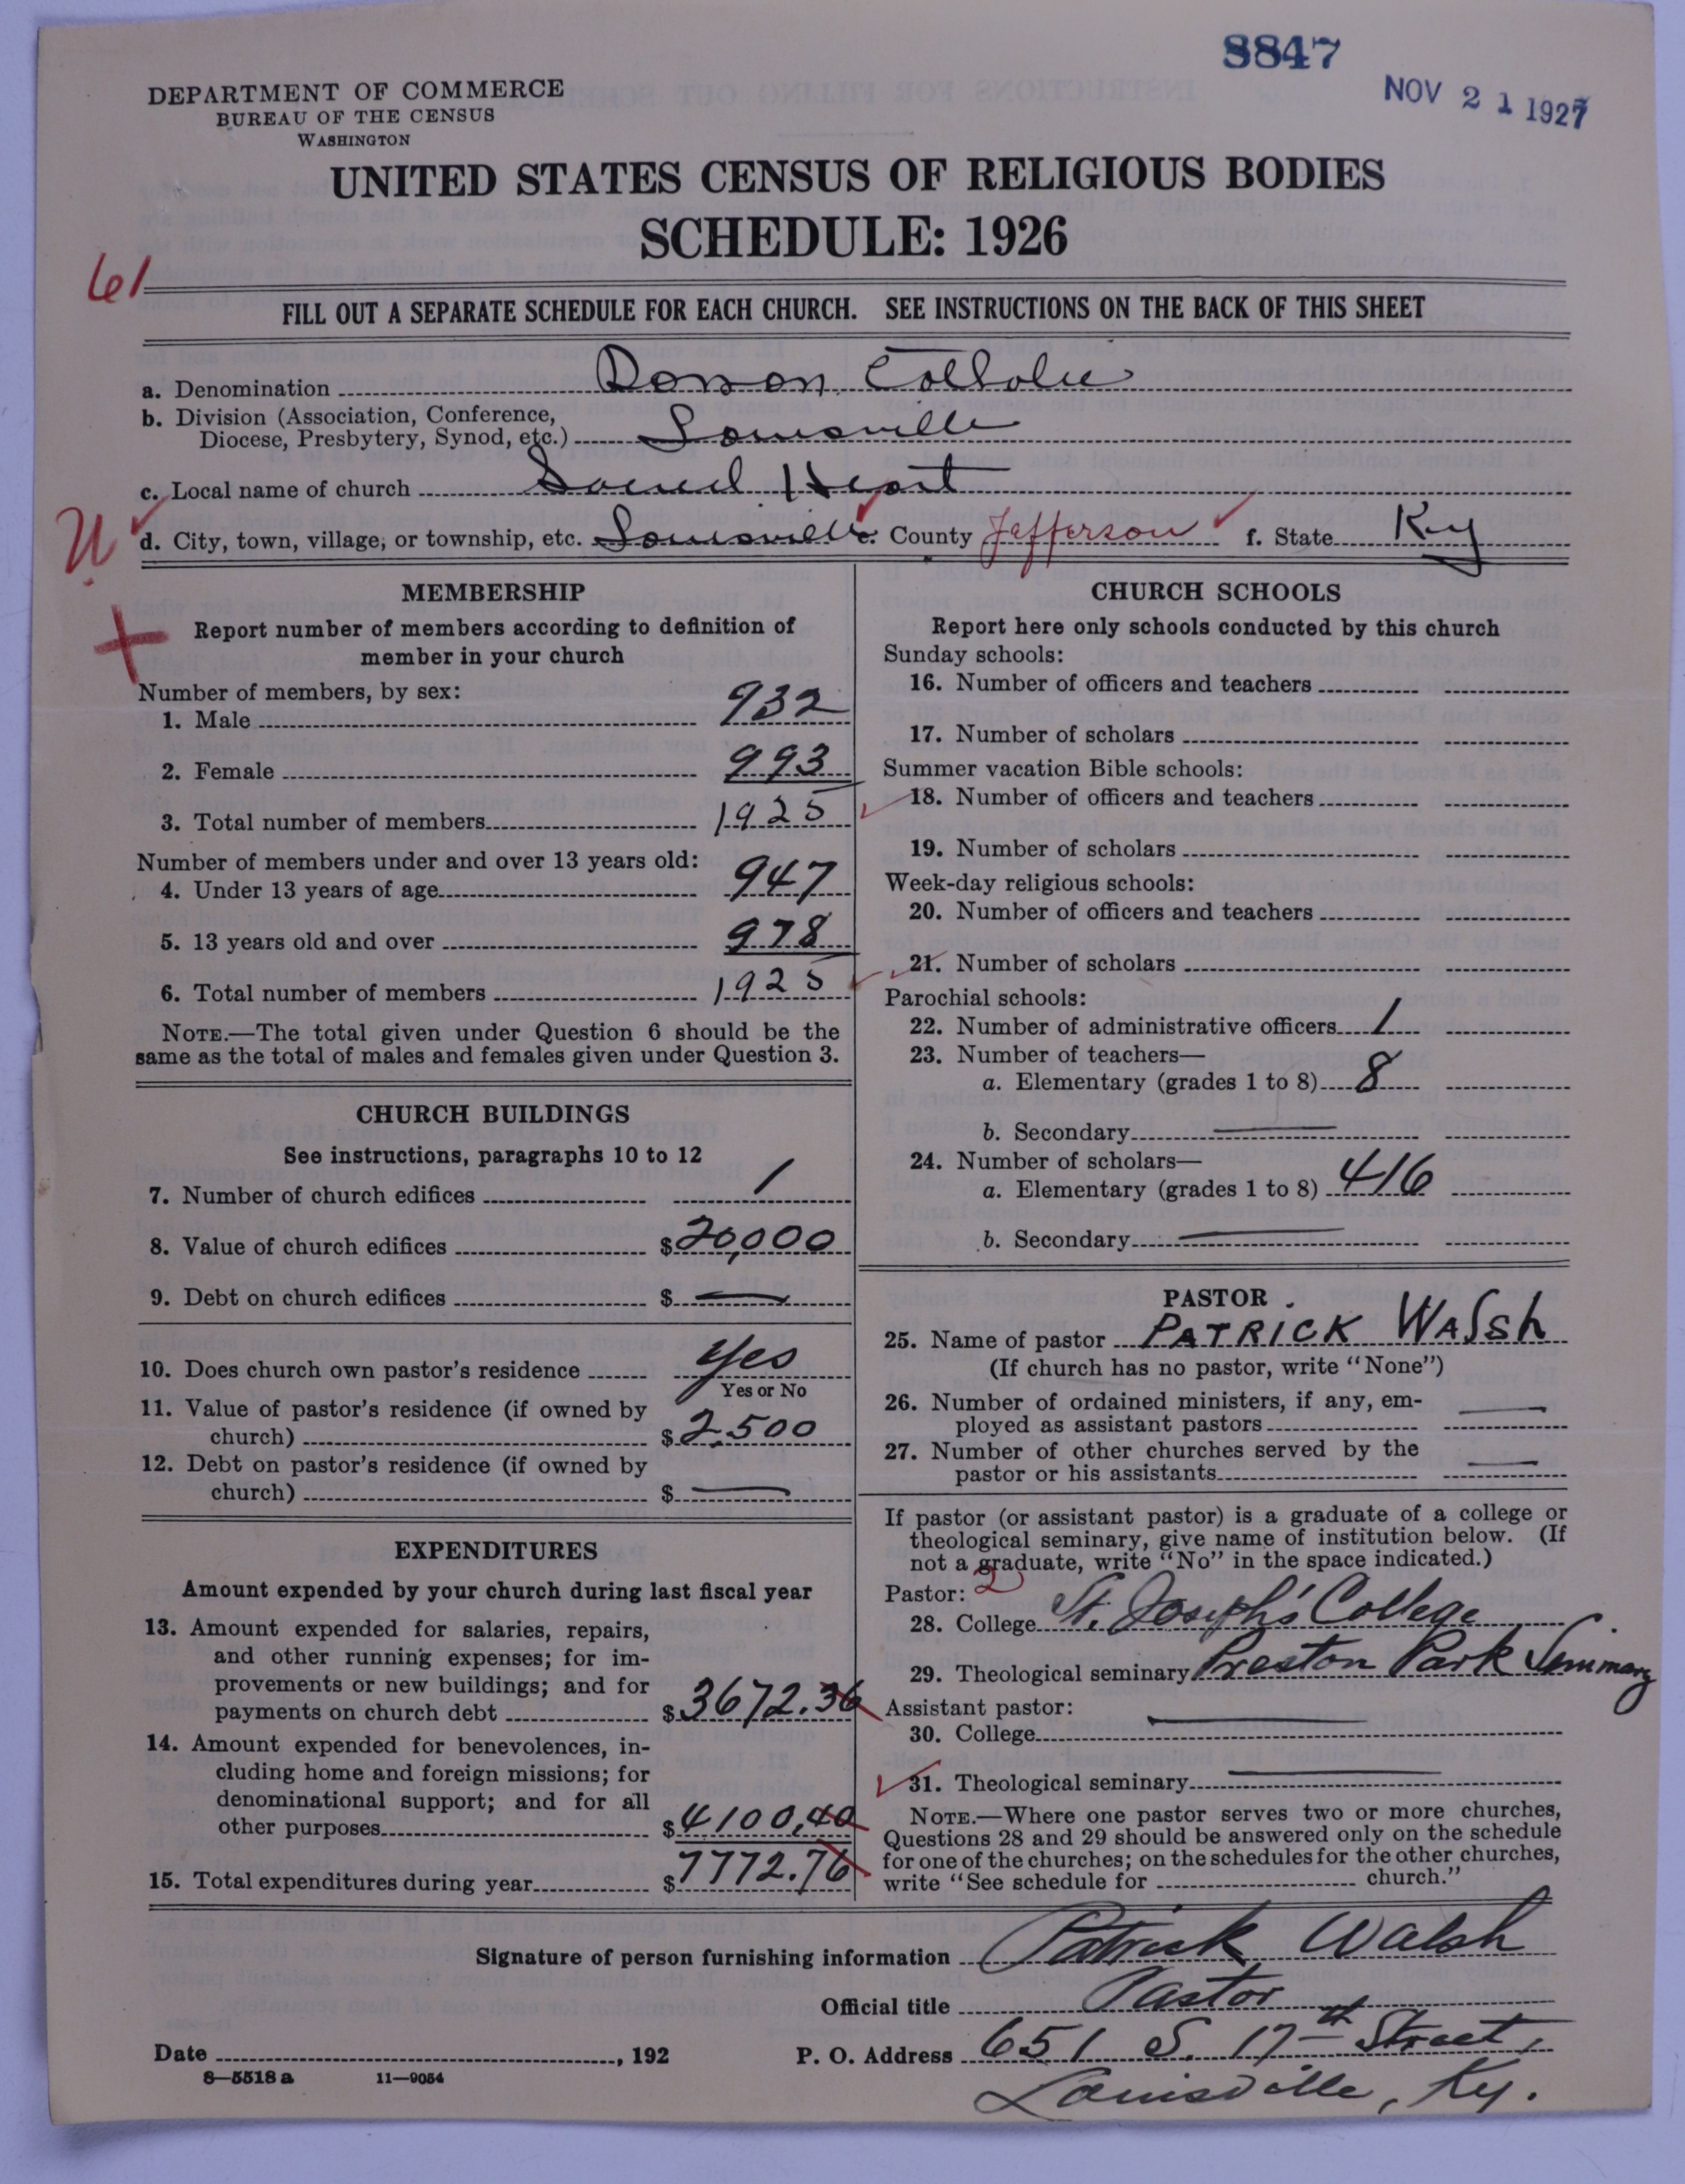 8847
NOV 21 1927
DEPARTMENT OF COMMERCE
BUREAU OF THE CENSUS
WASHINGTON
UNITED STATES CENSUS OF RELIGIOUS BODIES
SCHEDULE: 1926
61
FILL OUT A SEPARATE SCHEDULE FOR EACH CHURCH. SEE INSTRUCTIONS ON THE BACK OF THIS SHEET
a. Denomination Roman Catholic
b. Division (Association, Conference,
Diocese, Presbytery, Synod, etc.) Louisville
c. Local name of church Sacred Heart
U
d. City, town, village, or township, etc. Louisville e. County Jefferson f. State Ky
MEMBERSHIP
Report number of members according to definition of
member in your church
Number of members, by sex:
1. Male 932
2. Female 993
3. Total number of members 1925
Number of members under and over 13 years old:
4. Under 13 years of age 947
5. 13 years old and over 978
6. Total number of members 1925
NOTE.—The total given under Question 6 should be the
same as the total of males and females given under Question 3.
CHURCH BUILDINGS
See instructions, paragraphs 10 to 12
7. Number of church edifices 1
8. Value of church edifices $20,000
9. Debt on church edifices $ —
10. Does church own pastor's residence Yes
Yes or No
11. Value of pastor's residence (if owned by
church) $2,500
12. Debt on pastor's residence (if owned by
church) $ —
EXPENDITURES
Amount expended by your church during last fiscal year
13. Amount expended for salaries, repairs,
and other running expenses; for im-
provements or new buildings; and for
payments on church debt $3672.36
14. Amount expended for benevolences, in-
cluding home and foreign missions; for
denominational support; and for all
other purposes $4100,40
15. Total expenditures during year $7772.76
CHURCH SCHOOLS
Report here only schools conducted by this church
Sunday schools:
16. Number of officers and teachers
17. Number of scholars
Summer vacation Bible schools:
18. Number of officers and teachers
19. Number of scholars
Week-day religious schools:
20. Number of officers and teachers
21. Number of scholars
Parochial schools:
22. Number of administrative officers 1
23. Number of teachers—
a. Elementary (grades 1 to 8) 8
b. Secondary —
24. Number of scholars—
a. Elementary (grades 1 to 8) 416
b. Secondary —
PASTOR
25. Name of pastor PATRICK WALSh
(If church has no pastor, write "None")
26. Number of ordained ministers, if any, em-
ployed as assistant pastors —
27. Number of other churches served by the
pastor or his assistants —
If pastor (or assistant pastor) is a graduate of a college or
theological seminary, give name of institution below. (If
not a graduate, write "No" in the space indicated.)
Pastor: 2
28. College St. Joseph's College
29. Theological seminary Preston Park Seminary
Assistant pastor:
30. College —
31. Theological seminary —
NOTE.—Where one pastor serves two or more churches,
Questions 28 and 29 should be answered only on the schedule
for one of the churches; on the schedules for the other churches,
write "See schedule for church."
Signature of person furnishing information Patrick Walsh
Official title Pastor
Date , 192 P. O. Address 651 S. 17th Street,
8—5518 a 11—9054
Louisville, Ky.